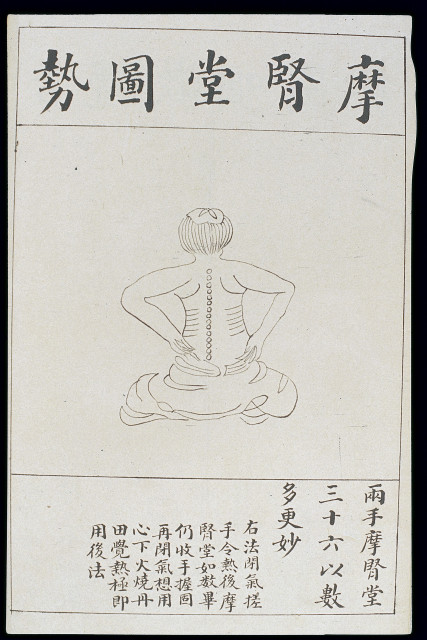 摩腎堂圖勢
兩手摩腎堂
三十六以數
多更妙
右法閉氣搓
手令熱後摩
腎堂如數畢
仍收手握固
再閉氣想用
心下火燒丹
田覺熱極即
用後法